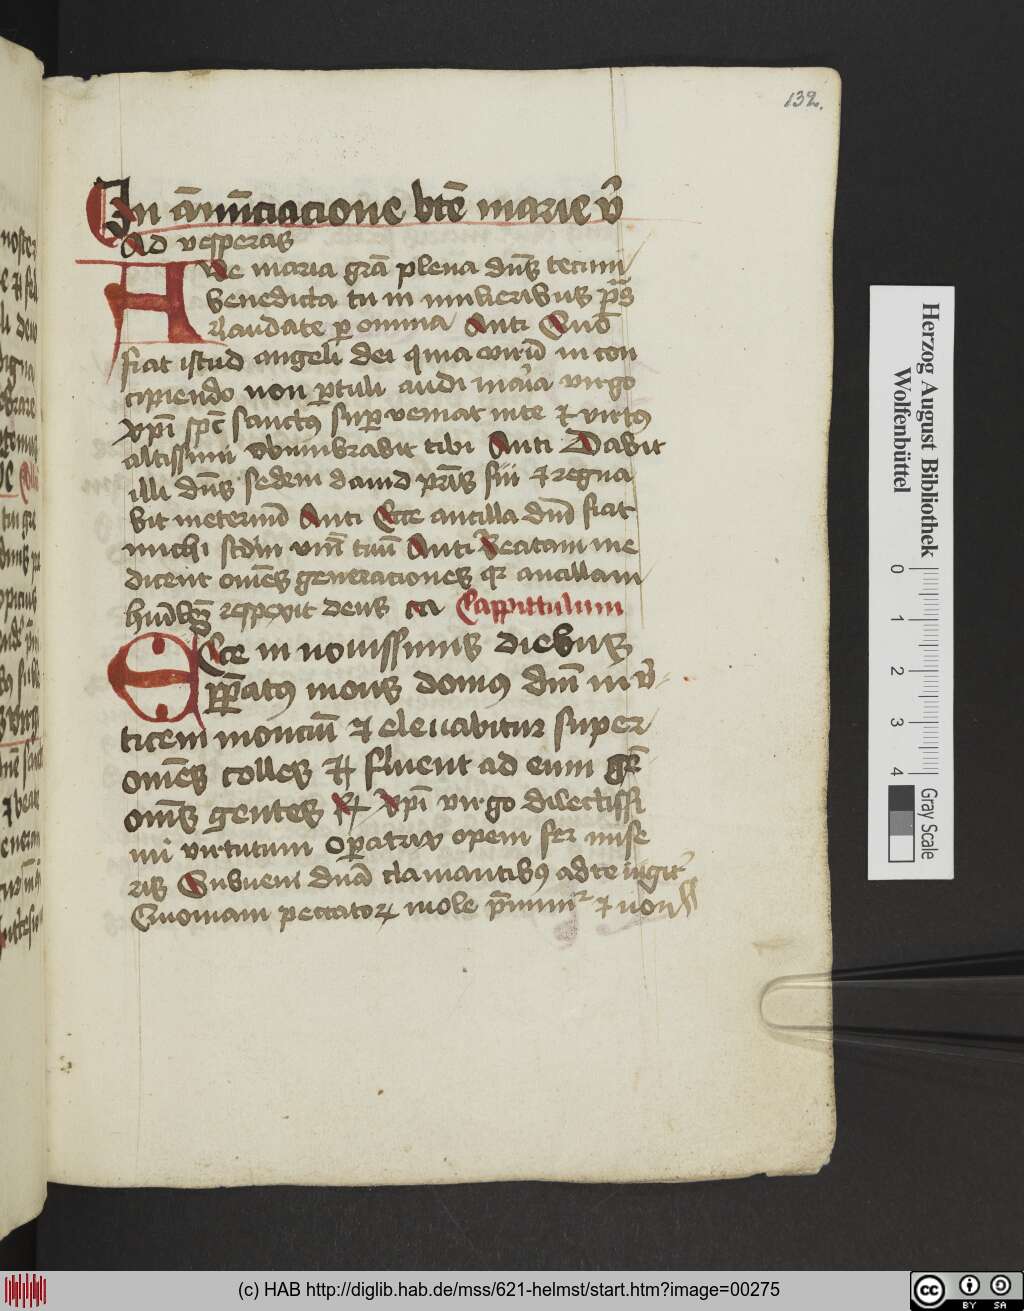 132.
In an̄nūciacione bt̄e marie v̊
Ad vesperas
Aue maria grā plena dn̄s tecum
benedicta tu in mulieribus p̄s
laudate p omnia Anti Quō
fiat istud angeli dei quia virū in con
cipiendo non ptuli audi maria virgo
xpī spc̄ sanctus superveniat in te et virtus
altissimi obumbrabit tibi Anti Dabit
illi dn̄s sedem dauid pr̄is sui et regna
bit in eternū Anti Ecce ancilla dnī fiat
michi scdm vm̄ tuū Anti Beatam me
dicent omēs generaciones qr ancillam
respexit deus Cappittulum
Ecce in nouissimis diebus
ppatus mons domus dnī in v
ticem monciū et eleuabitur super
omēs colles et fluent ad eum
omēs gentes R xpi virgo dilectissi
mi virtutum opatrix opem fer mise
ris Subueni dnā clamantibus ad te iugit
Quoniam peccator mole p̄mimr et non
Herzog August Bibliothek
Wolfenbüttel
0 1 2 3 4
Gray Scale
(c) HAB http://diglib.hab.de/mss/621-helmst/start.htm?image=00275
cc BY SA